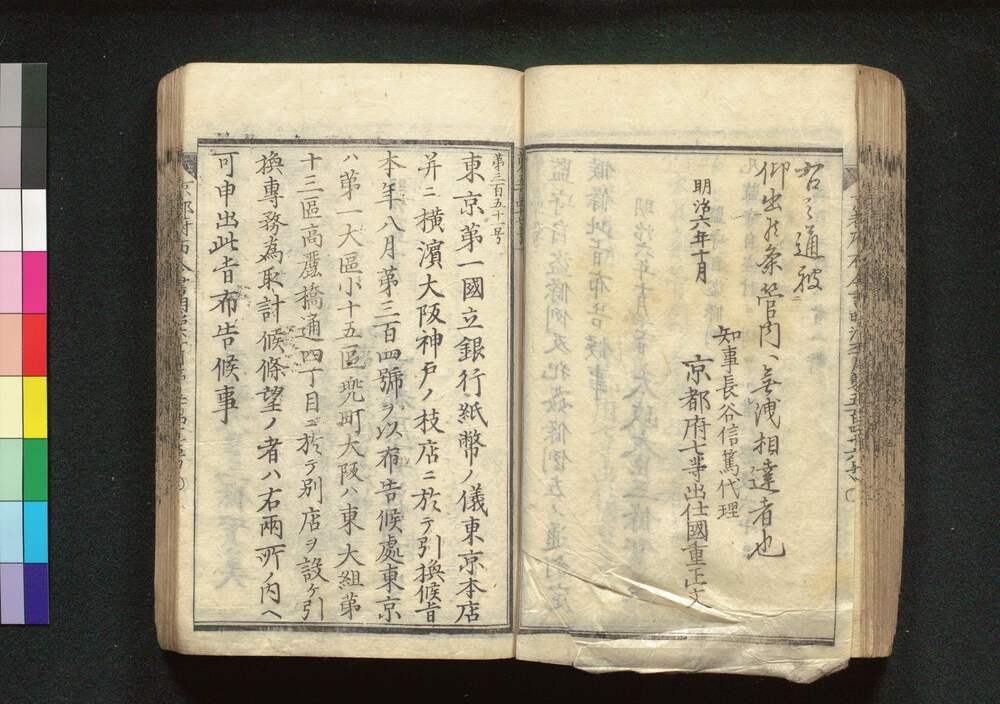 右之通被
仰出候条管内ヘ無洩相達者也
明治六年十月
知事長谷信篤代理
京都府七等出仕國重正文
第三百五十一号
東京第一國立銀行紙幣ノ儀東京本店
并ニ横濱大阪神戸ノ枝店ニ於テ引換候旨
本年八月第三百四號ヲ以布告候處東京
ハ第一大區小十五區兜町大阪ハ東大組第
十三區高麗橋通四丁目ニ於テ別店ヲ設ケ引
換專務為取討候條望ノ者ハ右兩所ノ内ヘ
可申出此旨布告候事